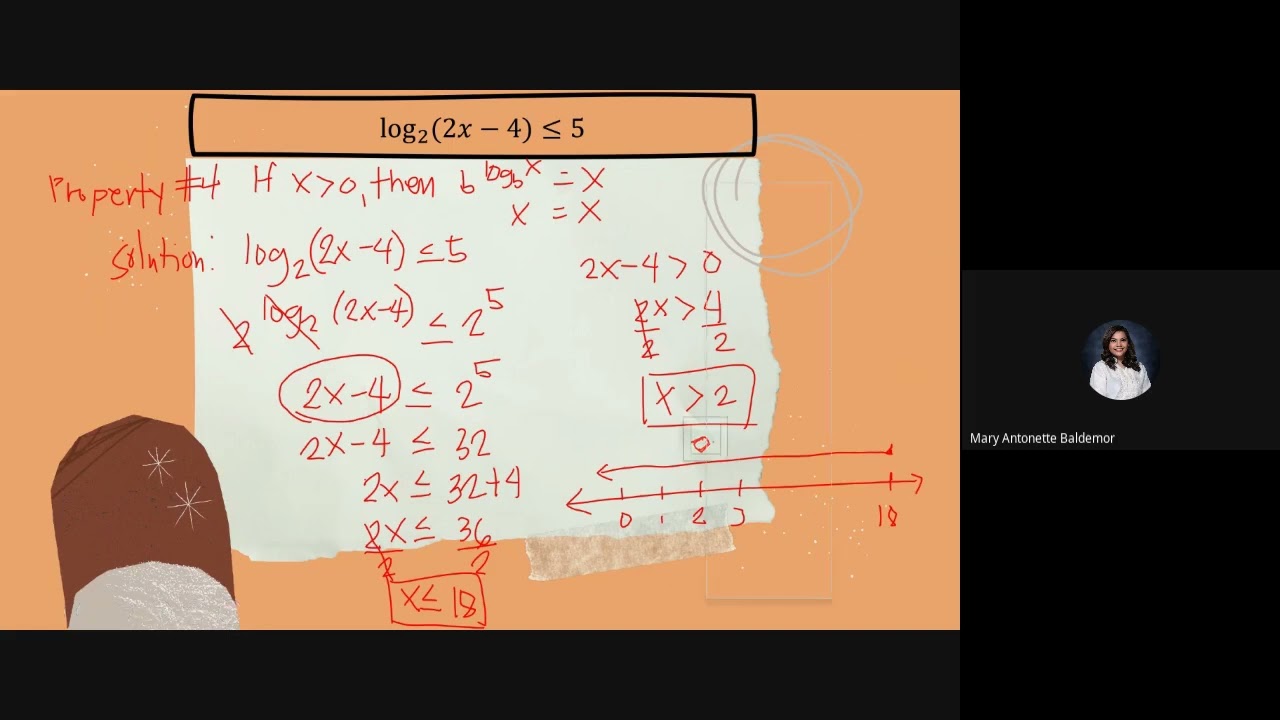 log₂(2x − 4) ≤ 5
Property #4 If x>0, then b^log_b x = x
x = x
solution: log₂(2x-4) ≤ 5
2^log₂(2x-4) ≤ 2⁵
2x-4 ≤ 2⁵
2x-4 ≤ 32
2x ≤ 32+4
2x ≤ 36
2 2
x ≤ 18
2x-4 > 0
2x > 4
2 2
x > 2
0 1 2 3 18
Mary Antonette Baldemor